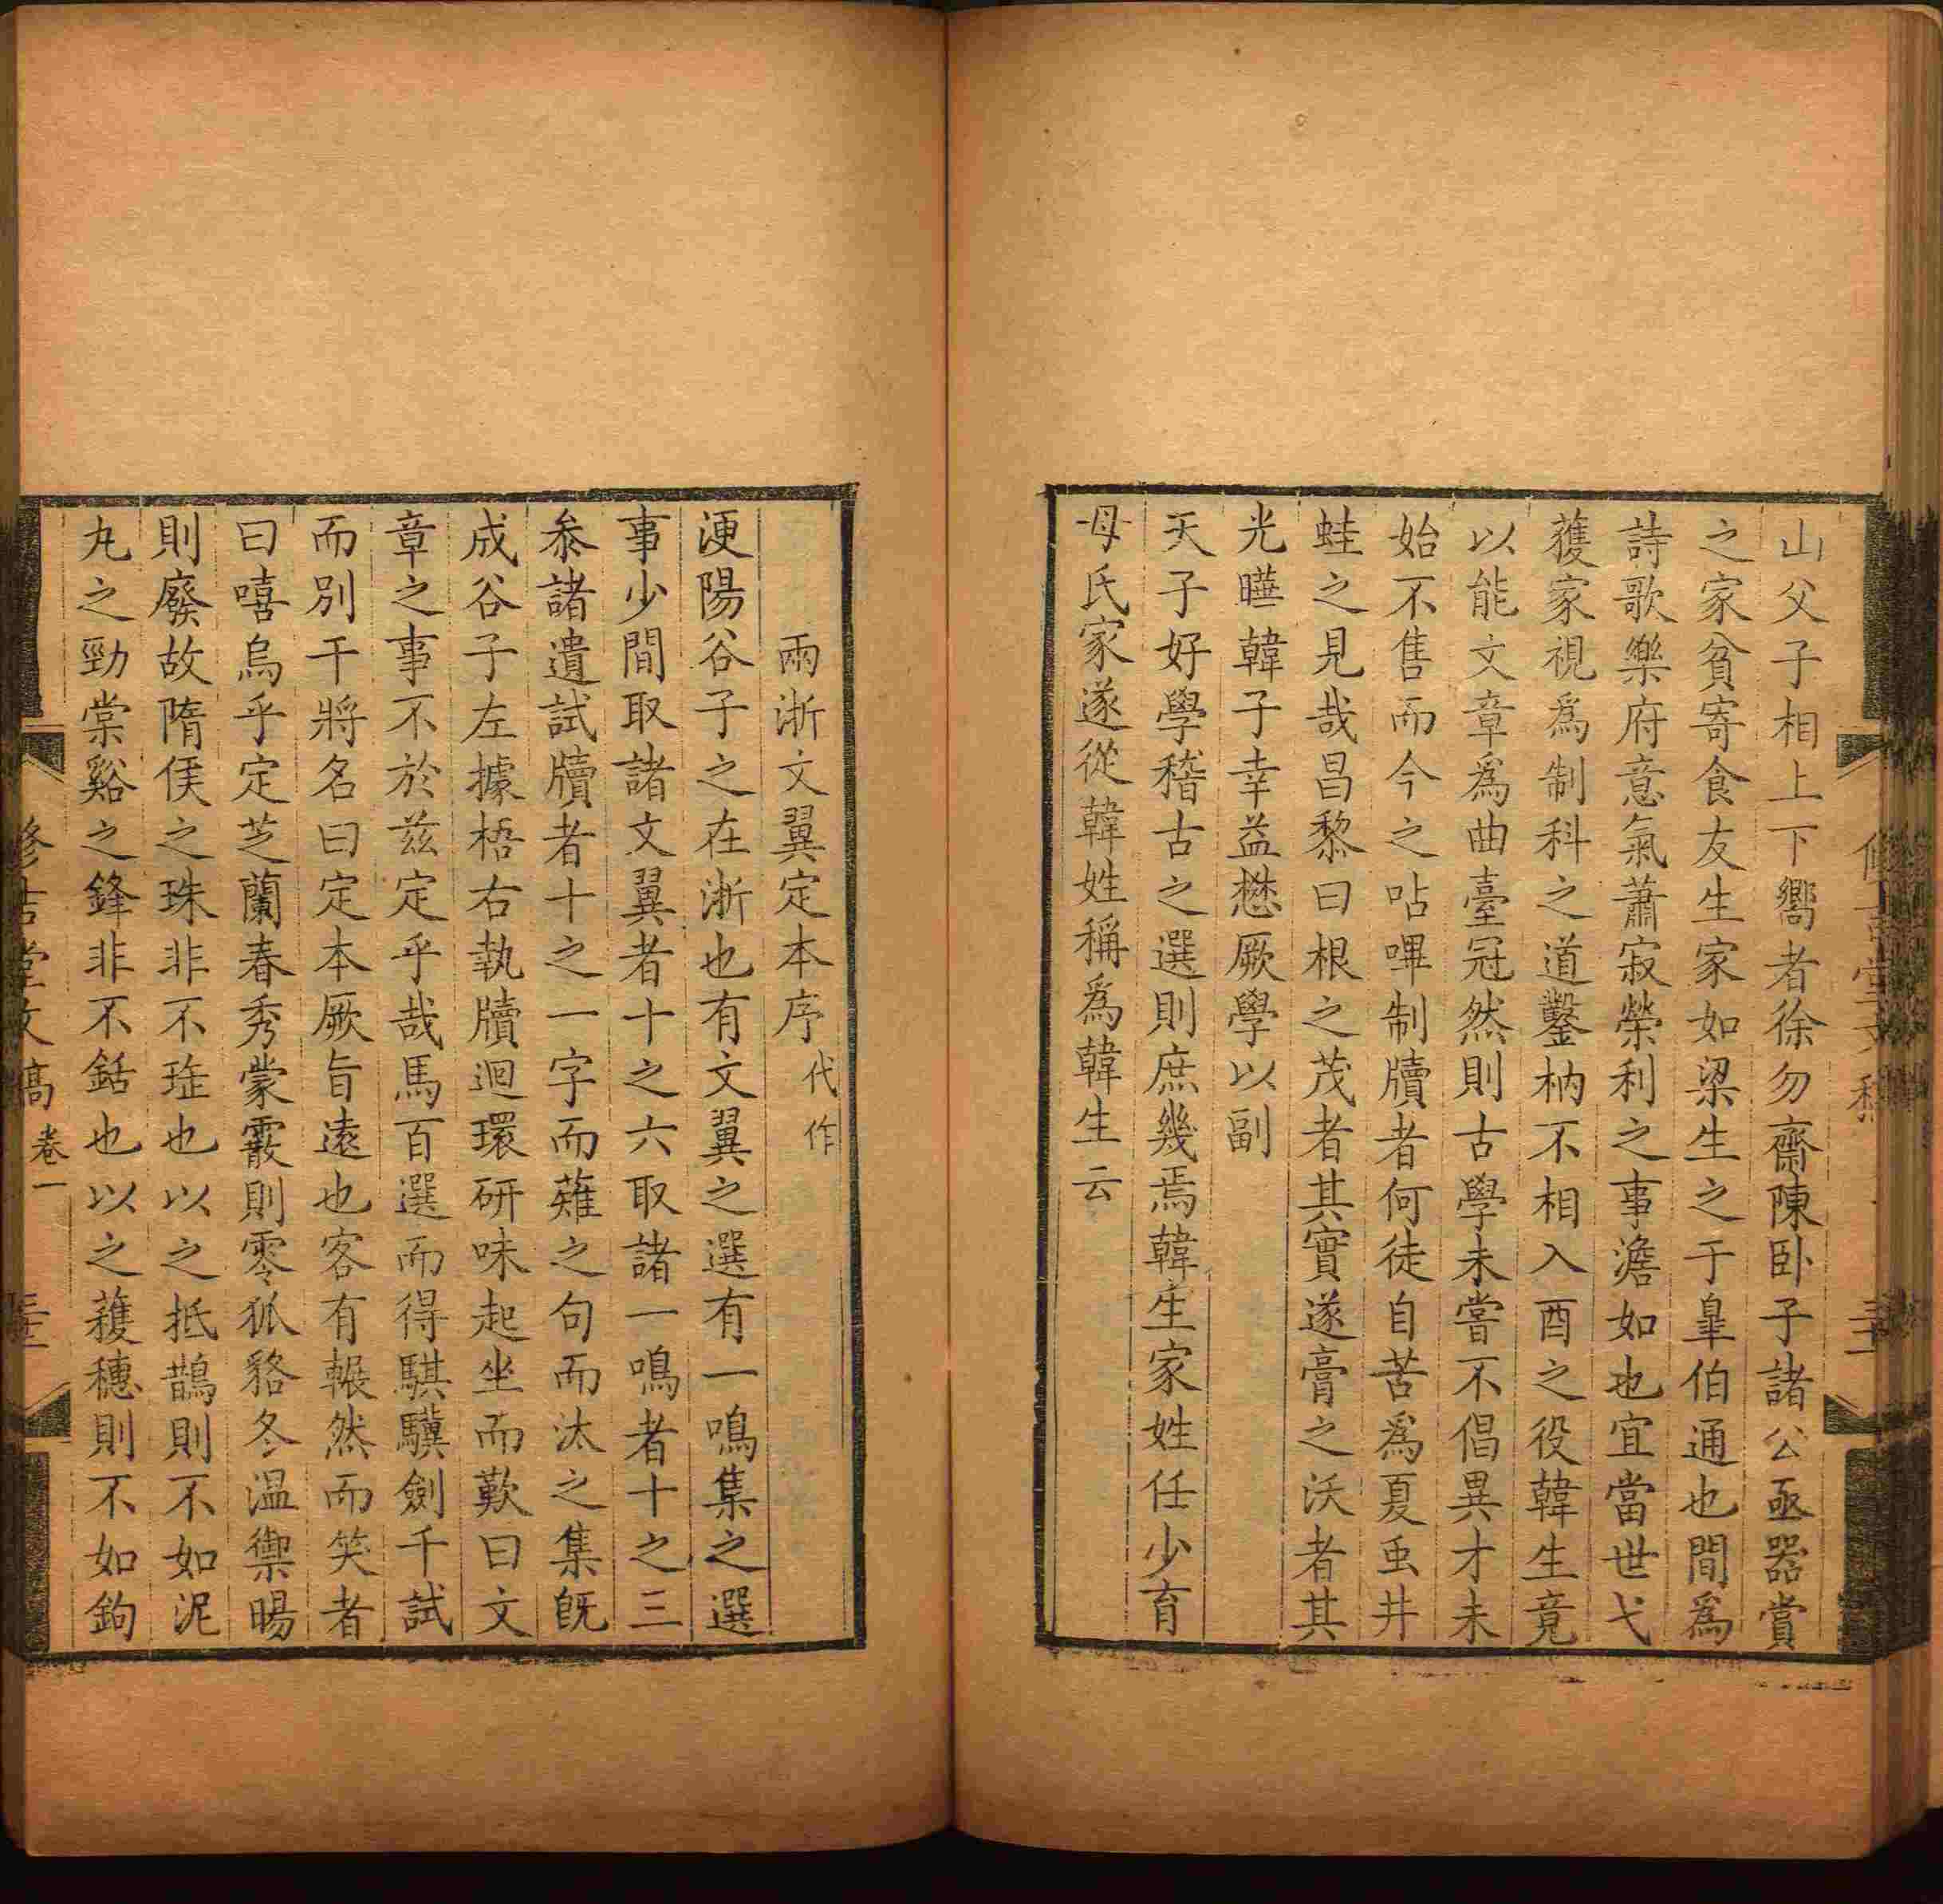 山父子相上下嚮者徐勿齋陳卧子諸公亟器賞
之家貧寄食友生家如梁生之于臯伯通也間為
詩歌樂府意氣蕭寂榮利之事澹如也宜當世弋
蒦家視為制科之道鑿枘不相入酉之役韓生竟
以能文章為曲臺冠然則古學未嘗不倡異才未
始不售而今之呫嗶制牘者何徒自苦為夏虫井
蛙之見哉昌黎曰根之茂者其實遂膏之沃者其
光曄韓子幸益懋厥學以副
天子好學稽古之選則庶幾焉韓生家姓任少育
母氏家遂從韓姓稱為韓生云
兩浙文翼定本序 代作
浭陽谷子之在浙也有文翼之選有一鳴集之選
事少間取諸文翼者十之六取諸一鳴者十之三
叅諸遺試牘者十之一字而薙之句而汰之集旣
成谷子左據梧右執牘迴環研味起坐而歎曰文
章之事不於兹定乎哉馬百選而得騏驥劍千試
而別干將名曰定本厥旨遠也客有輾然而笑者
曰嘻烏乎定芝蘭春秀蒙霰則零狐貉冬温禦暘
則廢故隋侯之珠非不琟也以之抵鵲則不如泥
丸之勁棠谿之鋒非不銛也以之蒦穗則不如鉤
修吉堂文稿 卷一